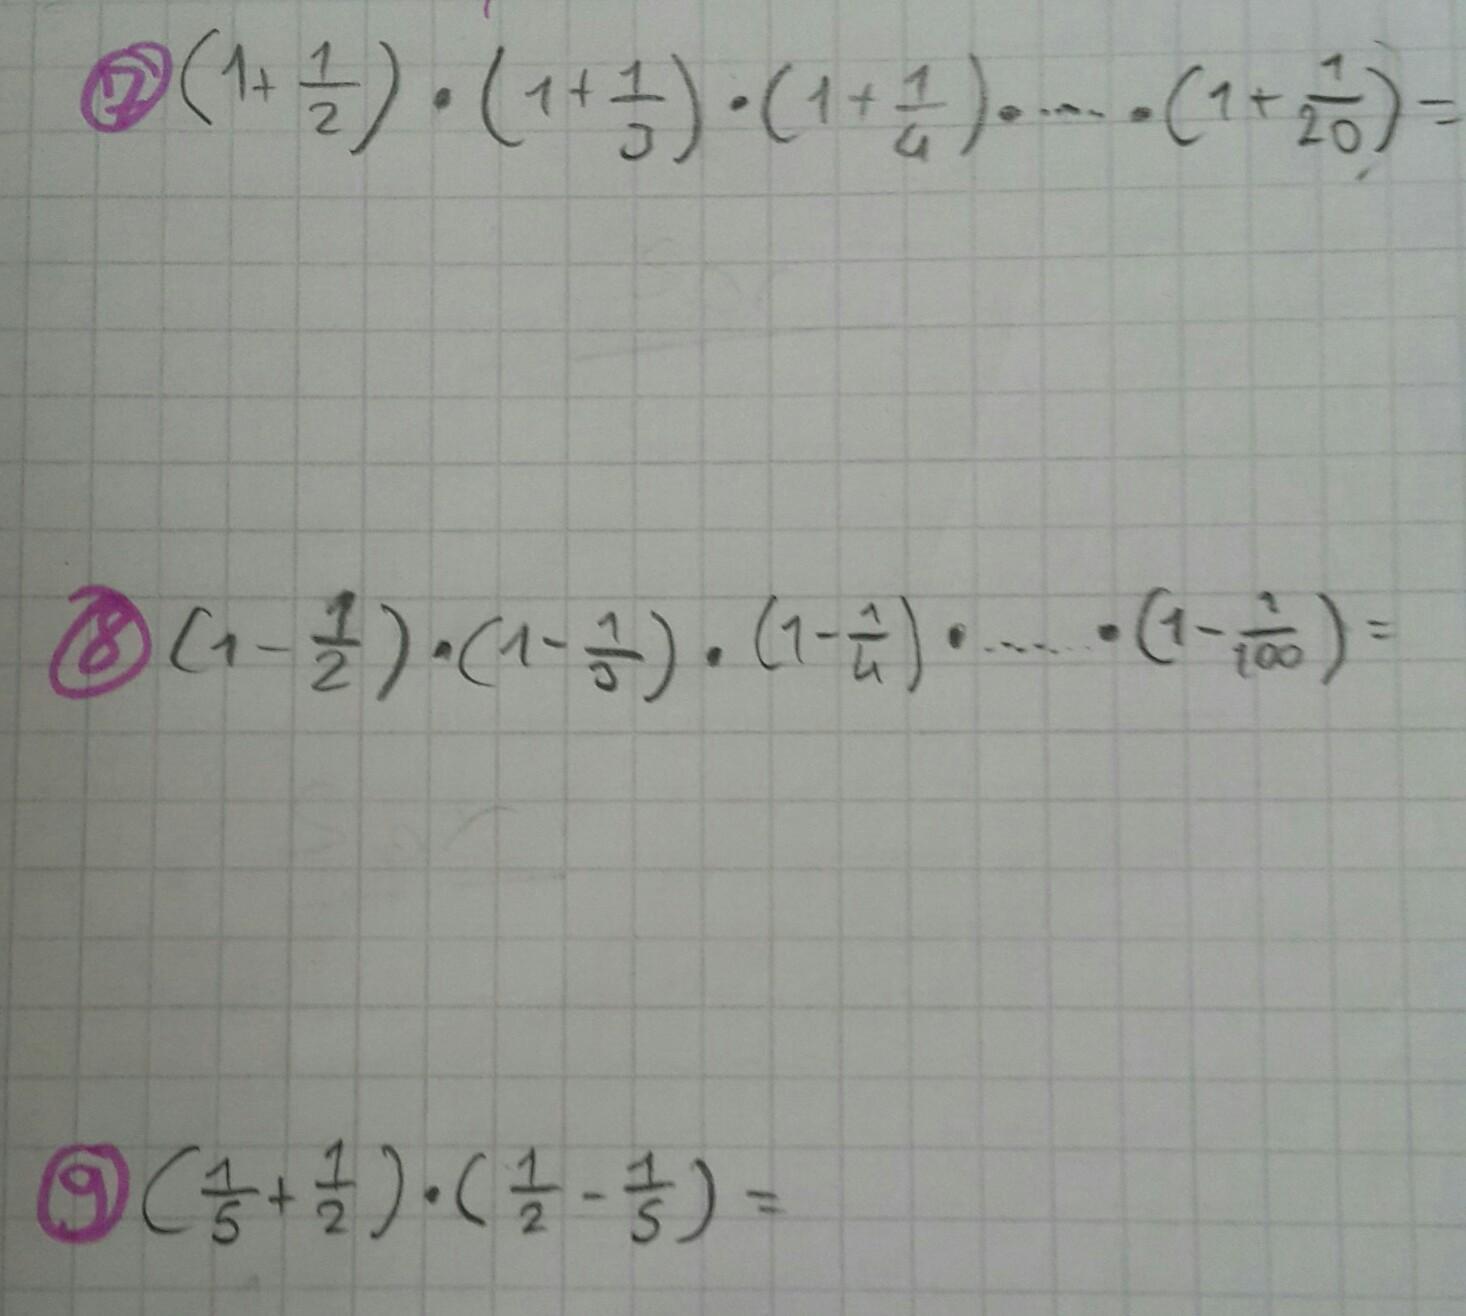 7 (1+1/2)·(1+1/3)·(1+1/4)·....·(1+1/20)=
8 (1-1/2)·(1-1/3)·(1-1/4)·.....·(1-1/100)=
9 (1/5+1/2)·(1/2-1/5)=